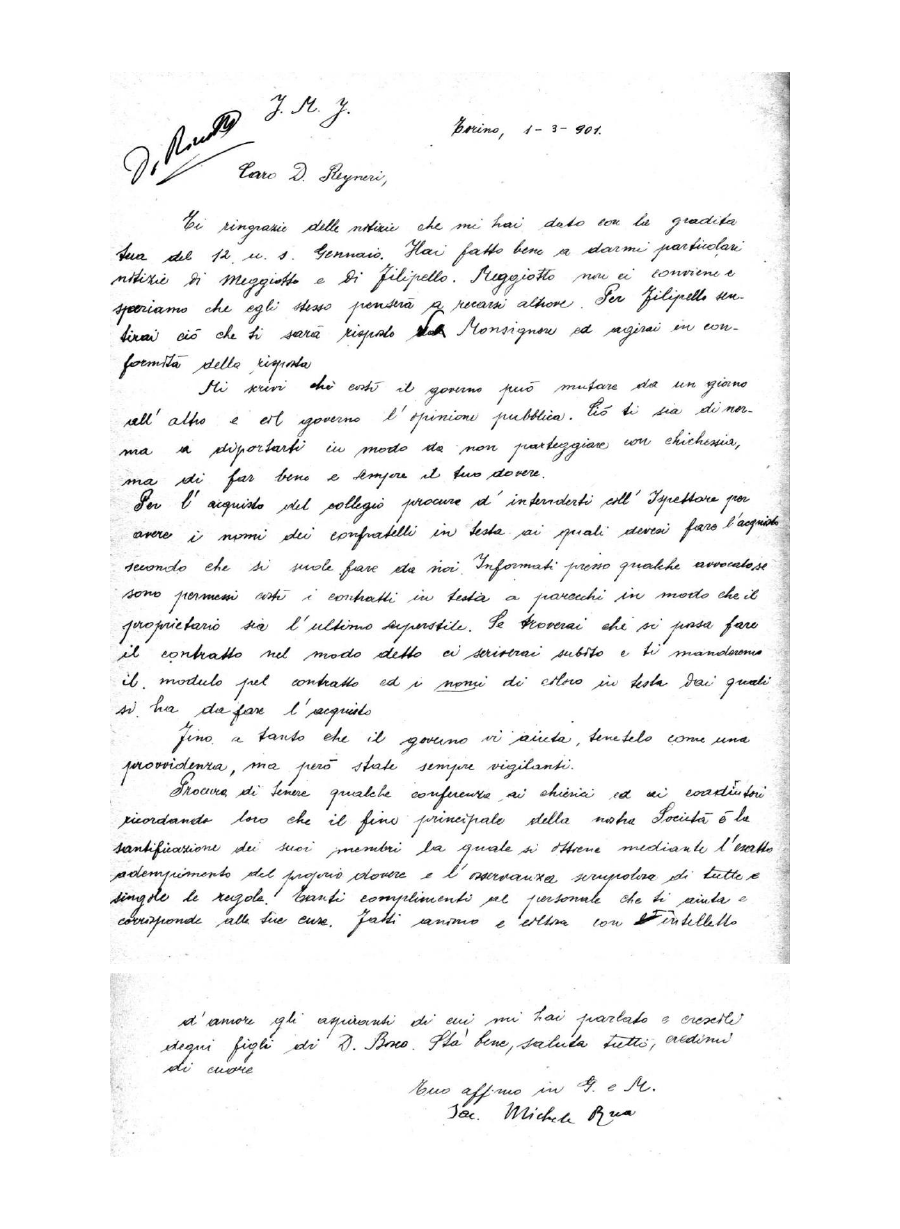 J. M. J.
D. Rinetti
Torino, 1-3-901.
Caro D. Reyneri,
Ti ringrazio delle notizie che mi hai dato con la gradita
tua del 12 u. s. Gennaio. Hai fatto bene a darmi particolari
notizie di Meggiotto e di Filipello. Meggiotto non ci conviene e
speriamo che egli stesso penserà a recarsi altrove. Per Filipello sen-
tirai ciò che ti sarà risposto da Monsignore ed agirai in con-
formità della risposta
Mi scrivi che costì il governo può mutare da un giorno
all'altro e col governo l'opinione pubblica. Ciò ti sia di nor-
ma a diportarti in modo da non parteggiare con chichessia,
ma di far bene e sempre il tuo dovere.
Per l'acquisto del collegio procura d'intenderti coll'Ispettore per
avere i nomi dei confratelli in testa ai quali devesi fare l'acquisto
secondo che si suole fare da noi. Informati presso qualche avvocato, se
sono permessi costì i contratti in testa a parecchi in modo che il
proprietario sia l'ultimo superstite. Se troverai che si possa fare
il contratto nel modo detto ci scriverai subito e ti manderemo
il modulo pel contratto ed i nomi di coloro in testa dai quali
si ha da fare l'acquisto
Fino a tanto che il governo vi aiuta, tenetelo come una
provvidenza, ma però state sempre vigilanti.
Procura di tenere qualche conferenza ai chierici ed ai coadiutori
ricordando loro che il fine principale della nostra Società è la
santificazione dei suoi membri la quale si ottiene mediante l'esatto
adempimento del proprio dovere e l'osservanza scrupolosa di tutte e
singole le regole. Tanti complimenti al personale che ti aiuta e
corrisponde alle tue cure. Fatti animo e coltiva con intelletto
d'amore gli aspiranti di cui mi hai parlato e crescili
degni figli di D. Bosco. Sta' bene, saluta tutti, credimi
di cuore
Tuo affmo in G. e M.
Sac. Michele Rua